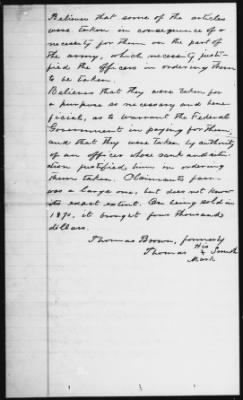 Believes that some of the articles
were taken in consequence of a
necessity for them on the part of
the army, which necessity justi-
fied the officers in ordering them
to be taken.
Believes that they were taken for
a purpose so necessary and bene
ficial, as to warrant the Federal
Government in paying for them,
and that they were taken by authority
of an officer whose rank and situ
ation justified him in ordering
them taken. Claimants farm
was a large one, but does not know
its exact extent. On being sold in
1870, it brought four thousand
dollars.
Thomas Brown, formerly
His
Thomas x Smith
Mark